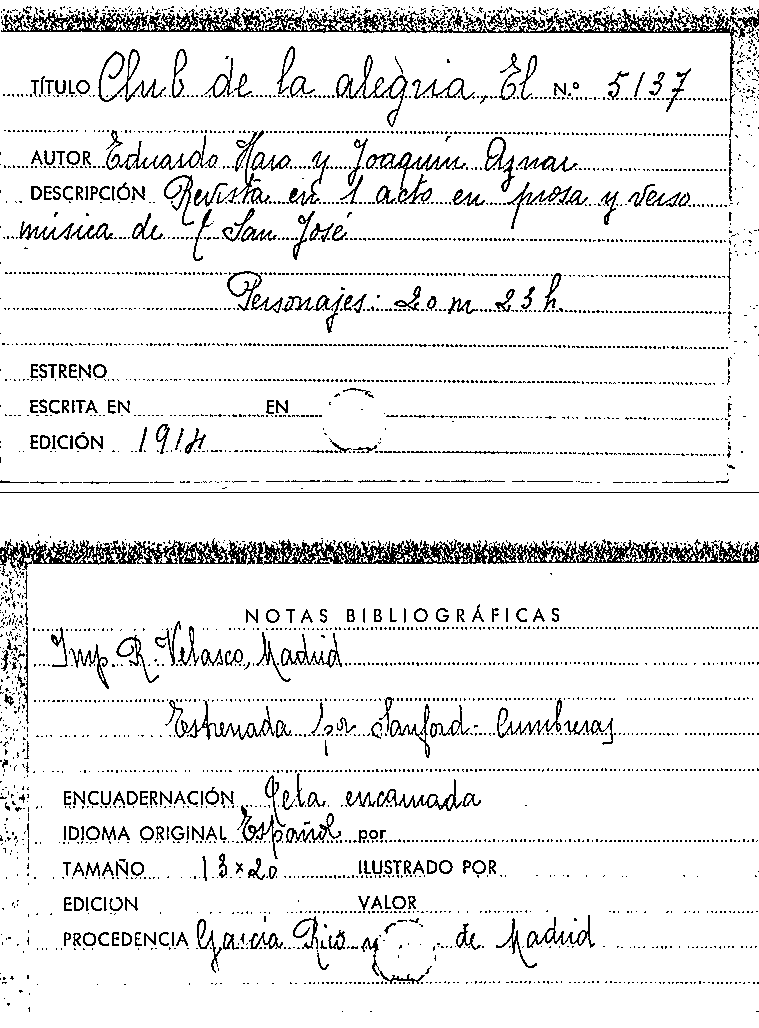 TÍTULO Club de la alegria, El N.º 5137
AUTOR Eduardo Haro y Joaquín Aznar
DESCRIPCIÓN Revista en 1 acto en prosa y verso
música de T San José
Personajes: 20 m 23 h.
ESTRENO
ESCRITA EN EN
EDICIÓN 1914
NOTAS BIBLIOGRÁFICAS
Imp. R. Velasco, Madrid
Estrenada por Sanford-Cumbreras
ENCUADERNACIÓN Tela encarnada
IDIOMA ORIGINAL Español por
TAMAÑO 13 x 20 ILUSTRADO POR
EDICION VALOR
PROCEDENCIA García Rico y de Madrid